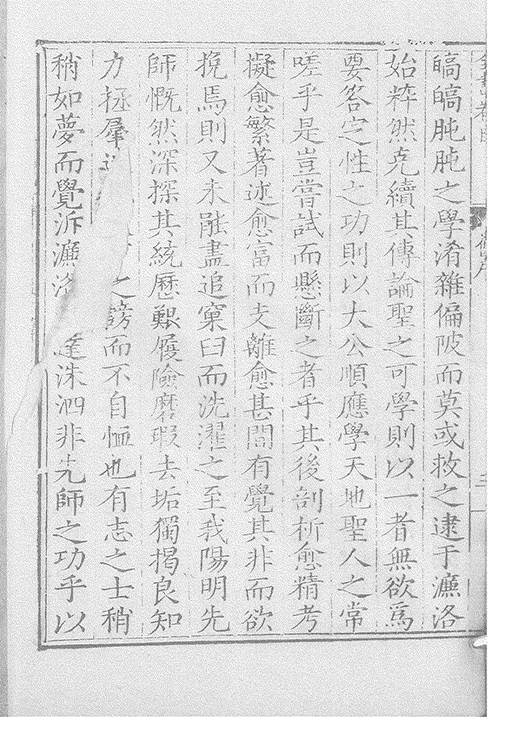 皜皜肫肫之學淆雜偏陂而莫或救之逮于濂洛
始粹然克續其傳論聖之可學則以一者無欲爲
要答定性之功則以大公順應學天地聖人之常
嗟乎是豈嘗試而懸斷之者乎其後剖析愈精考
擬愈繁著述愈富而支離愈甚間有覺其非而欲
挽焉則又未能盡追窠臼而洗濯之至我陽明先
師慨然深探其統歷艱履險磨瑕去垢獨揭良知
力拯羣 之謗而不自恤也有志之士稍
稍如夢而覺泝濂洛 達洙泗非先師之功乎以